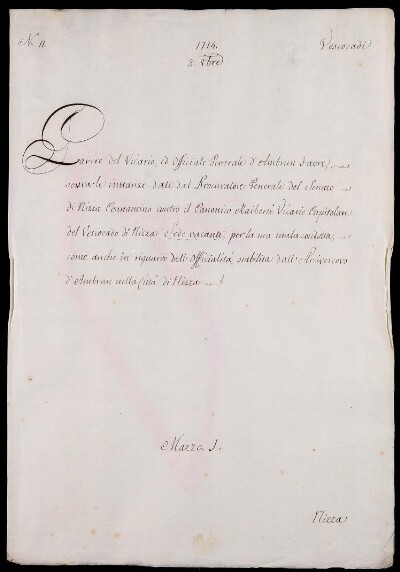 N.° 11.
1714.
Vescovadi
2. 8bre
Parere del Vicario, ed Officiale Generale d'Ambrun Javre,
sovra le instanze date dal Procuratore Generale del Senato
di Nizza Comancino contro il Canonico Raiberti Vicario Capitolare
del Vescovado di Nizza Sede vacante, per la sua mala condotta,
come anche in riguardo dell'Officialità stabilita dall'Arcivescovo
d'Ambrun nella Città di Nizza
Mazzo 1.
Nizza